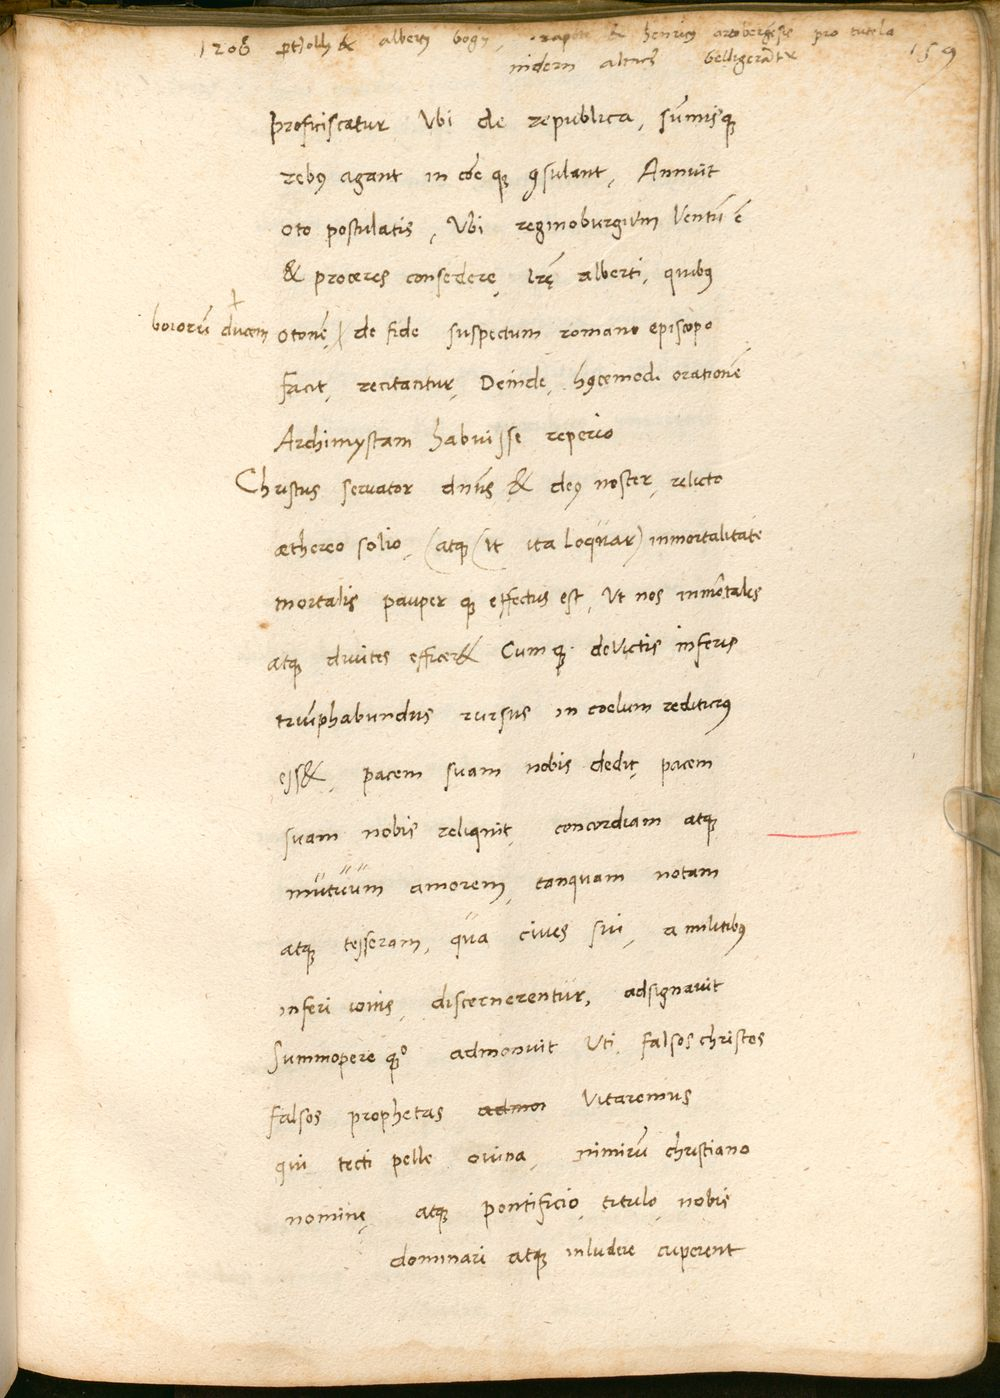 1208 & albertꝯ bogn, & henricꝯ ortobergẽsis pro tutela 159
nidern altach belligerãtr
Proficiscatur Ubi de republica, sũmisqꝫ
rebꝯ agant in cõe qꝫ ꝯsulant, Annuit
Oto postulatis, Ubi reginoburgium Ventũ ẽ
& proceres consedere, lrę alberti, quibꝯ
boiorũ ducem Otonẽ, de fide suspectum romano episcopo
facit, recitantur, Deinde, hꝯcemodi orationẽ
Archimystam habuisse reperio
Christus servator dnũs & deꝯ noster, relicto
æthereo solio, (atqꝫ (ut ita loquar) inmortalitate
mortalis pauper qꝫ effectus est, Ut nos inmõtales
atqꝫ divites efficer& Cum qꝫ devictis inferis
triumphabundus rursus in coelum rediturꝯ
ess&, pacem suam nobis dedit, pacem
suam nobis reliquit, concordiam atqꝫ
mutuum amorem, tanquam notam
atqꝫ tesseram, qua cives sui, a militibꝯ
inferi iovis, discernerentur, adsignavit
Summopere qꝫ admonuit Uti falsos christos
falsos prophetas admon Vitaremus
qui tecti pelle ovina, nimirũ christiano
nomine, atqꝫ pontificio, titulo, nobis
dominari atqꝫ inludere cuperent